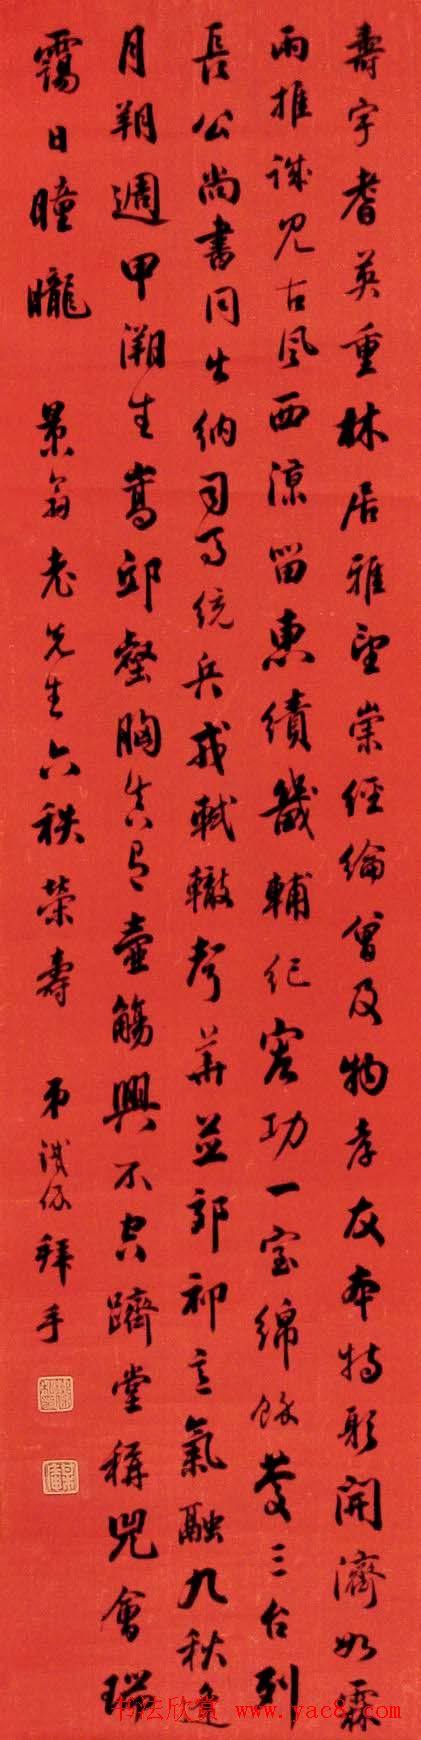 壽宇耆英重林居雅望崇經綸曾及物孝友本持躬開濟如霖
雨推誠見古風西涼留惠績畿輔紀功一室綿餘慶三台列
長公尚書同出納司馬統兵戎軾轍聲華並郊祁意氣融九秋逢
月朔週甲溯生嵩邱壑胸真有壺觴興不空躋堂稱兕會瑞
靄日曈曨 景翁老先生六秩榮壽 弟拜手
书法欣赏 www.yac8.com